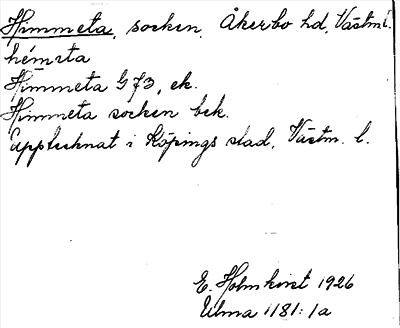 Himmeta, socken, Åkerbo hd, Västm. l.
hémta
Himmeta G73, ek.
Himmeta socken bek.
Upptecknat i Köpings stad, Västm. l.
E. Holmkvist 1926
Ulma 1181:1a